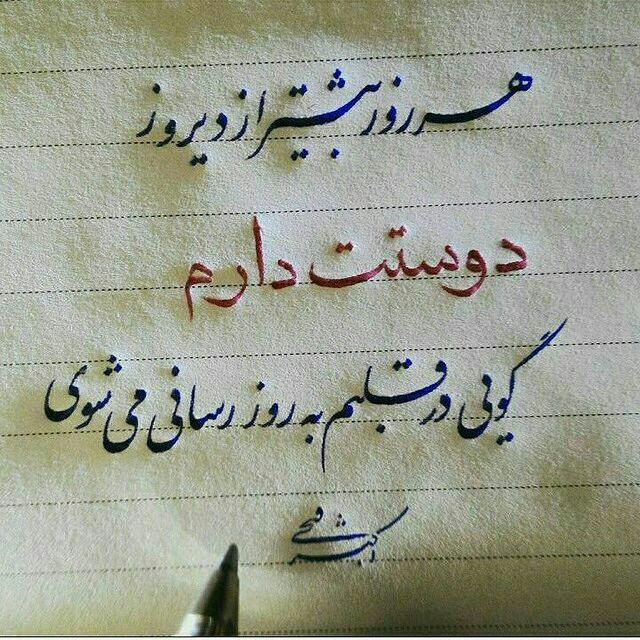 هر روز بیشتر از دیروز
دوستت دارم
گویی در قلبم به روز رسانی می شوی